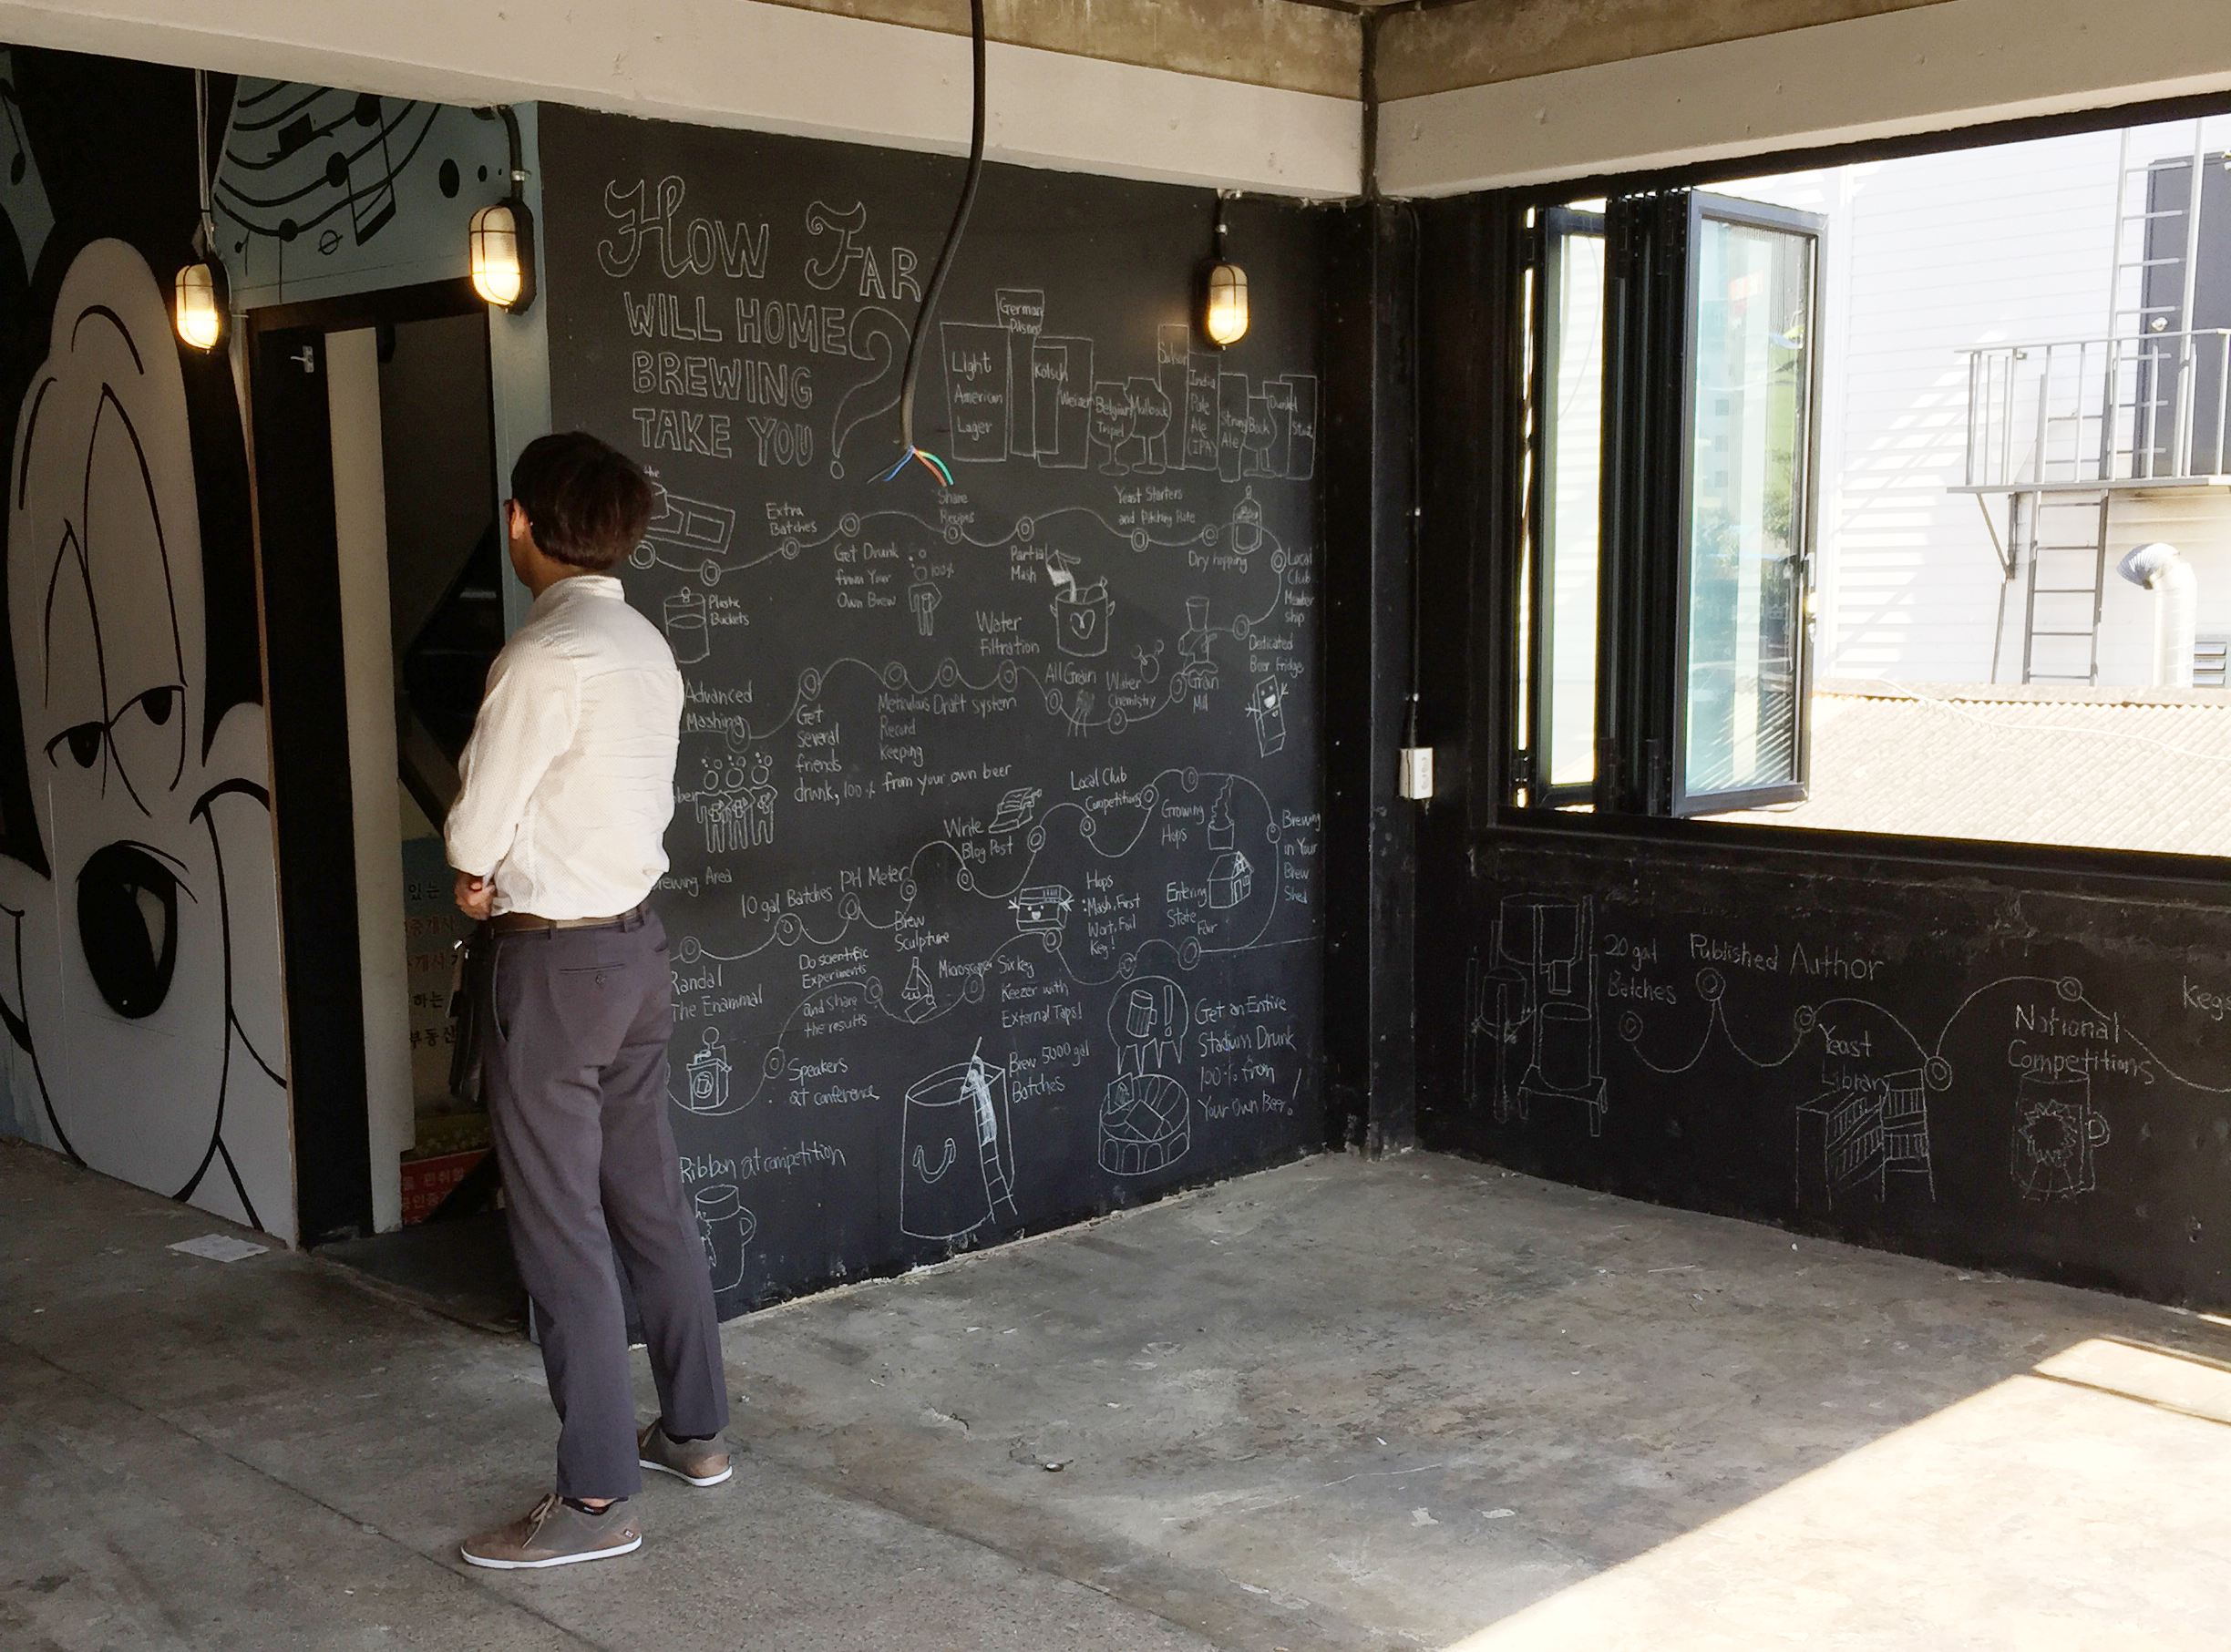 How Far
WILL HOME
BREWING
TAKE YOU?
German
Pilsner
Light
American
Lager
Kölsch
Weizen
Belgian
Tripel
India
Pale
Ale
(IPA)
Strong
Ale
Bock
Dunkel
the
Extra
Batches
Share
Recipes
Yeast Starters
and Pitching Rate
Get Drunk
from Your
Own Brew
100%
Partial
Mash
Dry hopping
Local
Club
Member
ship
Plastic
Buckets
Water
Filtration
Dedicated
Beer Fridge
Advanced
Mashing
Get
several
friends
drunk, 100% from your own beer
Meticulous
Record
Keeping
Draft system
All Grain
Water
Chemistry
Grain
Mill
Local Club
Competitions
Write
Blog Post
Growing
Hops
Brewing
in Your
Brew
Shed
Brewing Area
10 gal Batches
PH Meter
Brew
Sculpture
Hops
Mash, First
Keg!
Entering
State
Fair
Randal
The Enammal
Do scientific
Experiments
and Share
the results
Microscope
Six keg
Keezer with
External Taps!
Get an Entire
Stadium Drunk
100% from
Your Own Beer!
Speakers
at conference
Brew 5000 gal
Batches
Ribbon at competition
20 gal
Batches
Published Author
Yeast
Library
National
Competitions
있는
하는